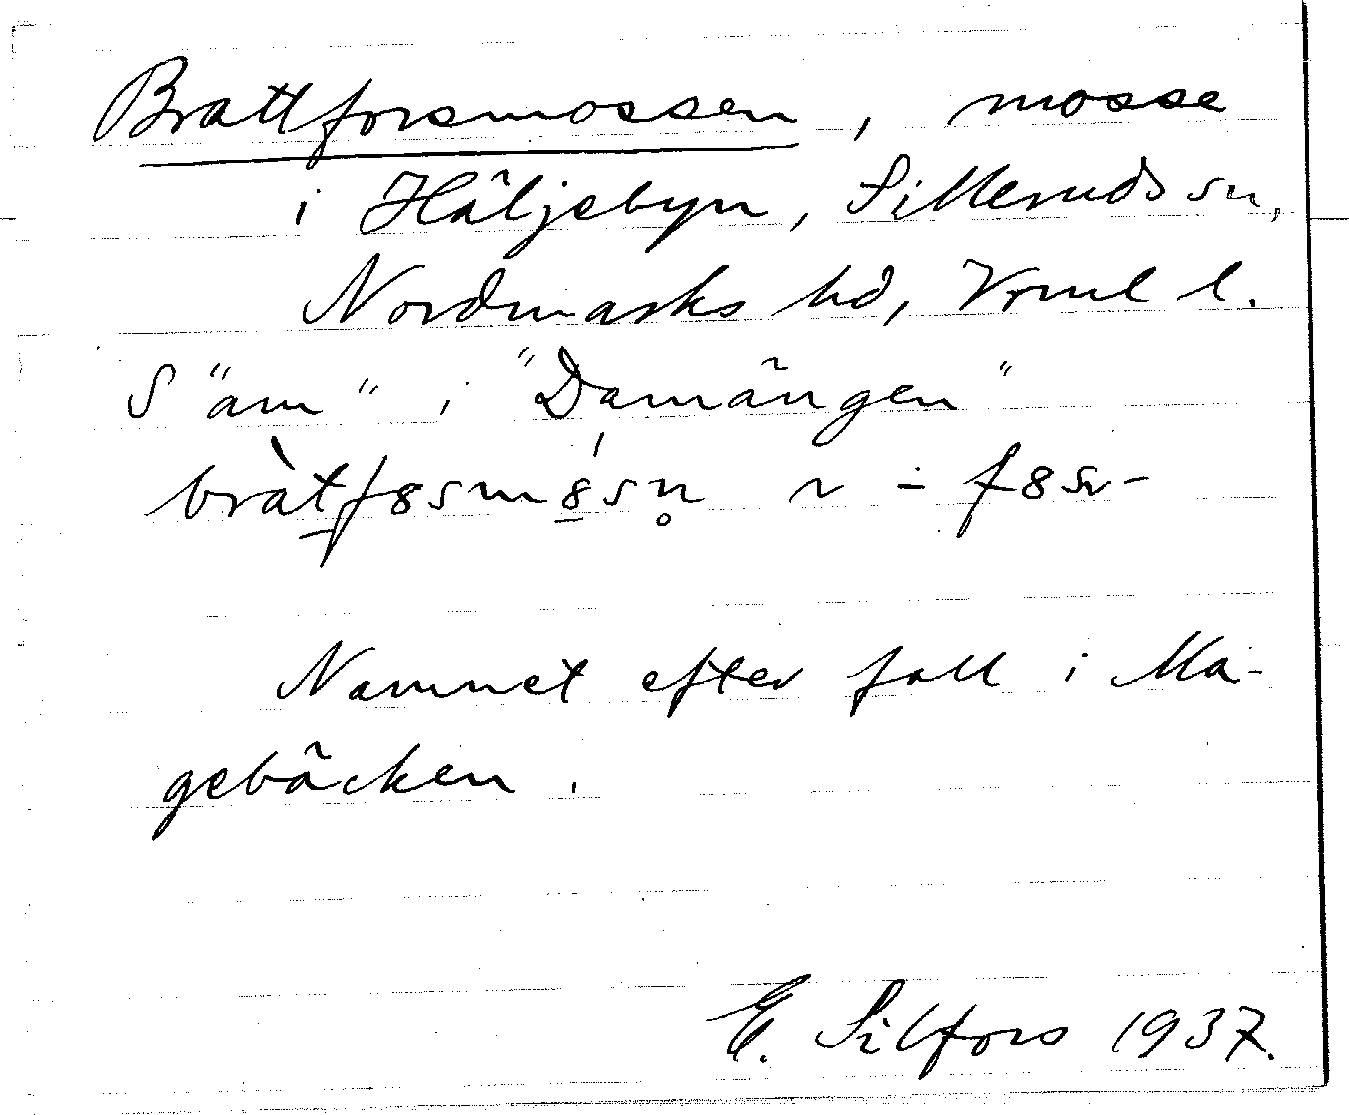 Brattforsmossen, mosse
i Häljebyn, Silleruds sn,
Nordmarks hd, Vrml l.
S "äm" i "Damängen"
bràtf8sm8́sn̥ ~ -f8sn-
Namnet efter fall i Ma-
gebäcken.
E. Silfors 1937.